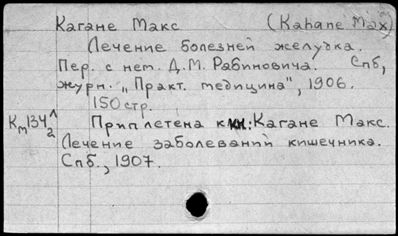 Кагане Макс (Kahane Max)
Лечение болезней желудка.
Пер. с нем. Д. М. Рабиновича. Спб,
журн. "Практ. медицина", 1906.
150 стр.
Приплетена к кн.: Кагане Макс.
Лечение заболеваний кишечника.
Спб., 1907.